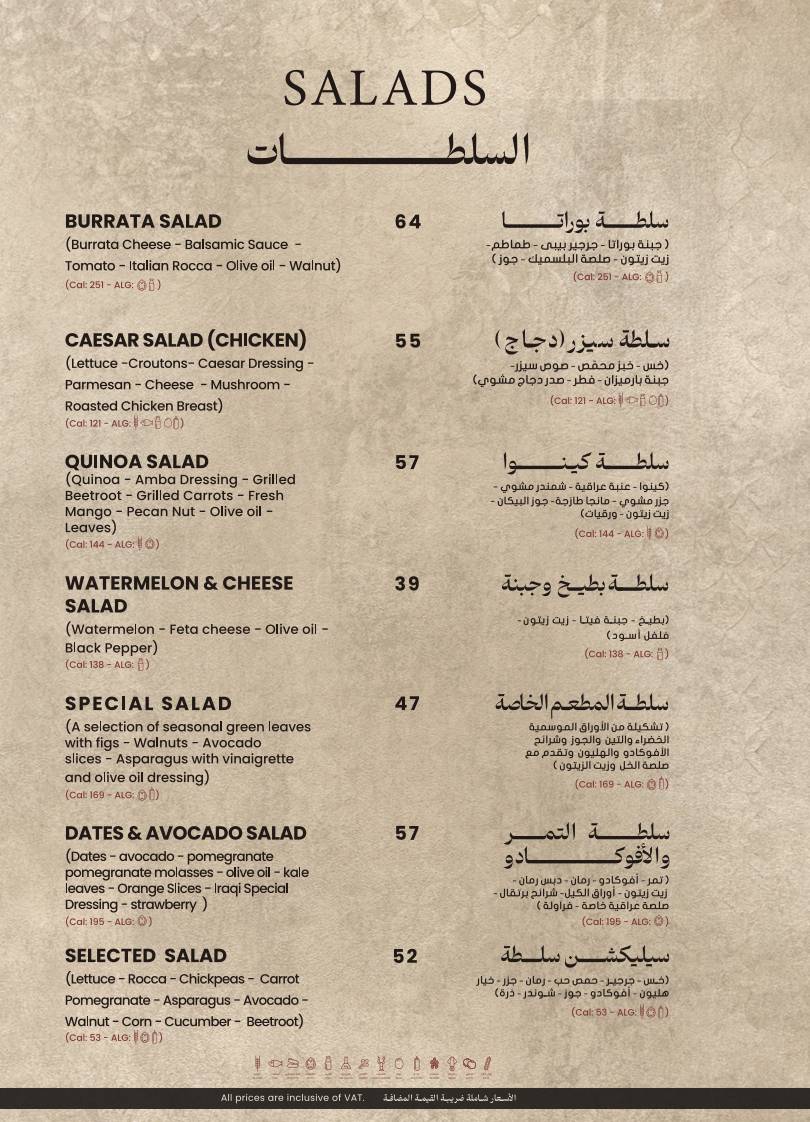 SALADS
السلطـــات
BURRATA SALAD
64
سلطـة بوراتـا
(Burrata Cheese - Balsamic Sauce -
Tomato - Italian Rocca - Olive oil - Walnut)
(Cal: 251 - ALG: )
( جبنة بوراتا - جرجير بيبي - طماطم-
زيت زيتون - صلصة البلسميك - جوز )
(Cal: 251 - ALG: )
CAESAR SALAD (CHICKEN)
55
سـلطة سيزر(دجـاج )
(Lettuce -Croutons- Caesar Dressing -
Parmesan - Cheese - Mushroom -
Roasted Chicken Breast)
(Cal: 121 - ALG: )
(خس - خبز محمّص - صوص سيزر-
جبنة بارميزان - فطر - صدر دجاج مشوي)
(Cal: 121 - ALG: )
QUINOA SALAD
57
سلطـة كينـوا
(Quinoa - Amba Dressing - Grilled
Beetroot - Grilled Carrots - Fresh
Mango - Pecan Nut - Olive oil -
Leaves)
(Cal: 144 - ALG: )
(كينوا - عنبة عراقية - شمندر مشوي -
جزر مشوي - مانجا طازجة- جوز البيكان -
زيت زيتون - ورقيات)
(Cal: 144 - ALG: )
WATERMELON & CHEESE
SALAD
39
سلطـة بطيـخ وجبنة
(Watermelon - Feta cheese - Olive oil -
Black Pepper)
(Cal: 138 - ALG: )
(بطيـخ - جبنـة فيتـا - زيت زيتون -
فلفل أسـود )
(Cal: 138 - ALG: )
SPECIAL SALAD
47
سلطـة المطعـم الخاصة
(A selection of seasonal green leaves
with figs - Walnuts - Avocado
slices - Asparagus with vinaigrette
and olive oil dressing)
(Cal: 169 - ALG: )
( تشكيلة من الأوراق الموسمية
الخضراء والتين والجوز وشرائح
الأفوكادو والهليون وتقدم مع
صلصة الخل وزيت الزيتون )
(Cal: 169 - ALG: )
DATES & AVOCADO SALAD
57
سلطـة التمـر
والأفوكـــادو
(Dates - avocado - pomegranate
pomegranate molasses - olive oil - kale
leaves - Orange Slices - Iraqi Special
Dressing - strawberry )
(Cal: 195 - ALG: )
( تمر - أفوكادو - رمان - دبس رمان -
زيت زيتون - أوراق الكيل- شرائح برتقال -
صلصة عراقية خاصة - فراولة )
(Cal: 195 - ALG: )
SELECTED SALAD
52
سيليكشـن سلـطة
(Lettuce - Rocca - Chickpeas - Carrot
Pomegranate - Asparagus - Avocado -
Walnut - Corn - Cucumber - Beetroot)
(Cal: 53 - ALG: )
(خـس - جرجيـر - حمص حب - رمان - جزر - خيار
هليون - أفوكادو - جوز - شوندر - ذرة)
(Cal: 53 - ALG: )
All prices are inclusive of VAT.
الأسـعار شـاملة ضريبـة القيمـة المضافـة